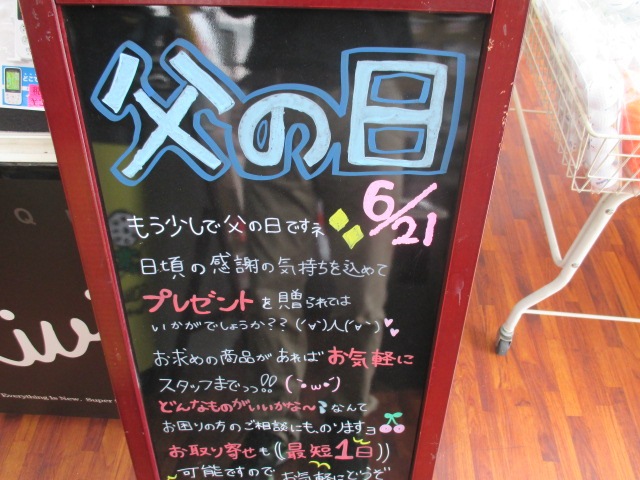 父の日
6/21
もう少しで父の日ですネ
日頃の感謝の気持ちを込めて
プレゼントを贈られては
いかがでしょうか?? (´∀`)人(´∀`)
お求めの商品があれば お気軽に
スタッフまでっっ!! (・ω・)
どんなものがいいかな〜 なんて
お困りの方のご相談にも、のりますョ
お取り寄せも((最短1日))
可能ですので お気軽にどうぞ
Everything Is New. Super